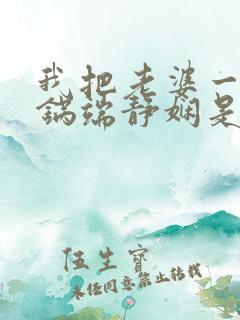 我把老婆一
锅端静娴是
伍生宝
未经同意禁止转载